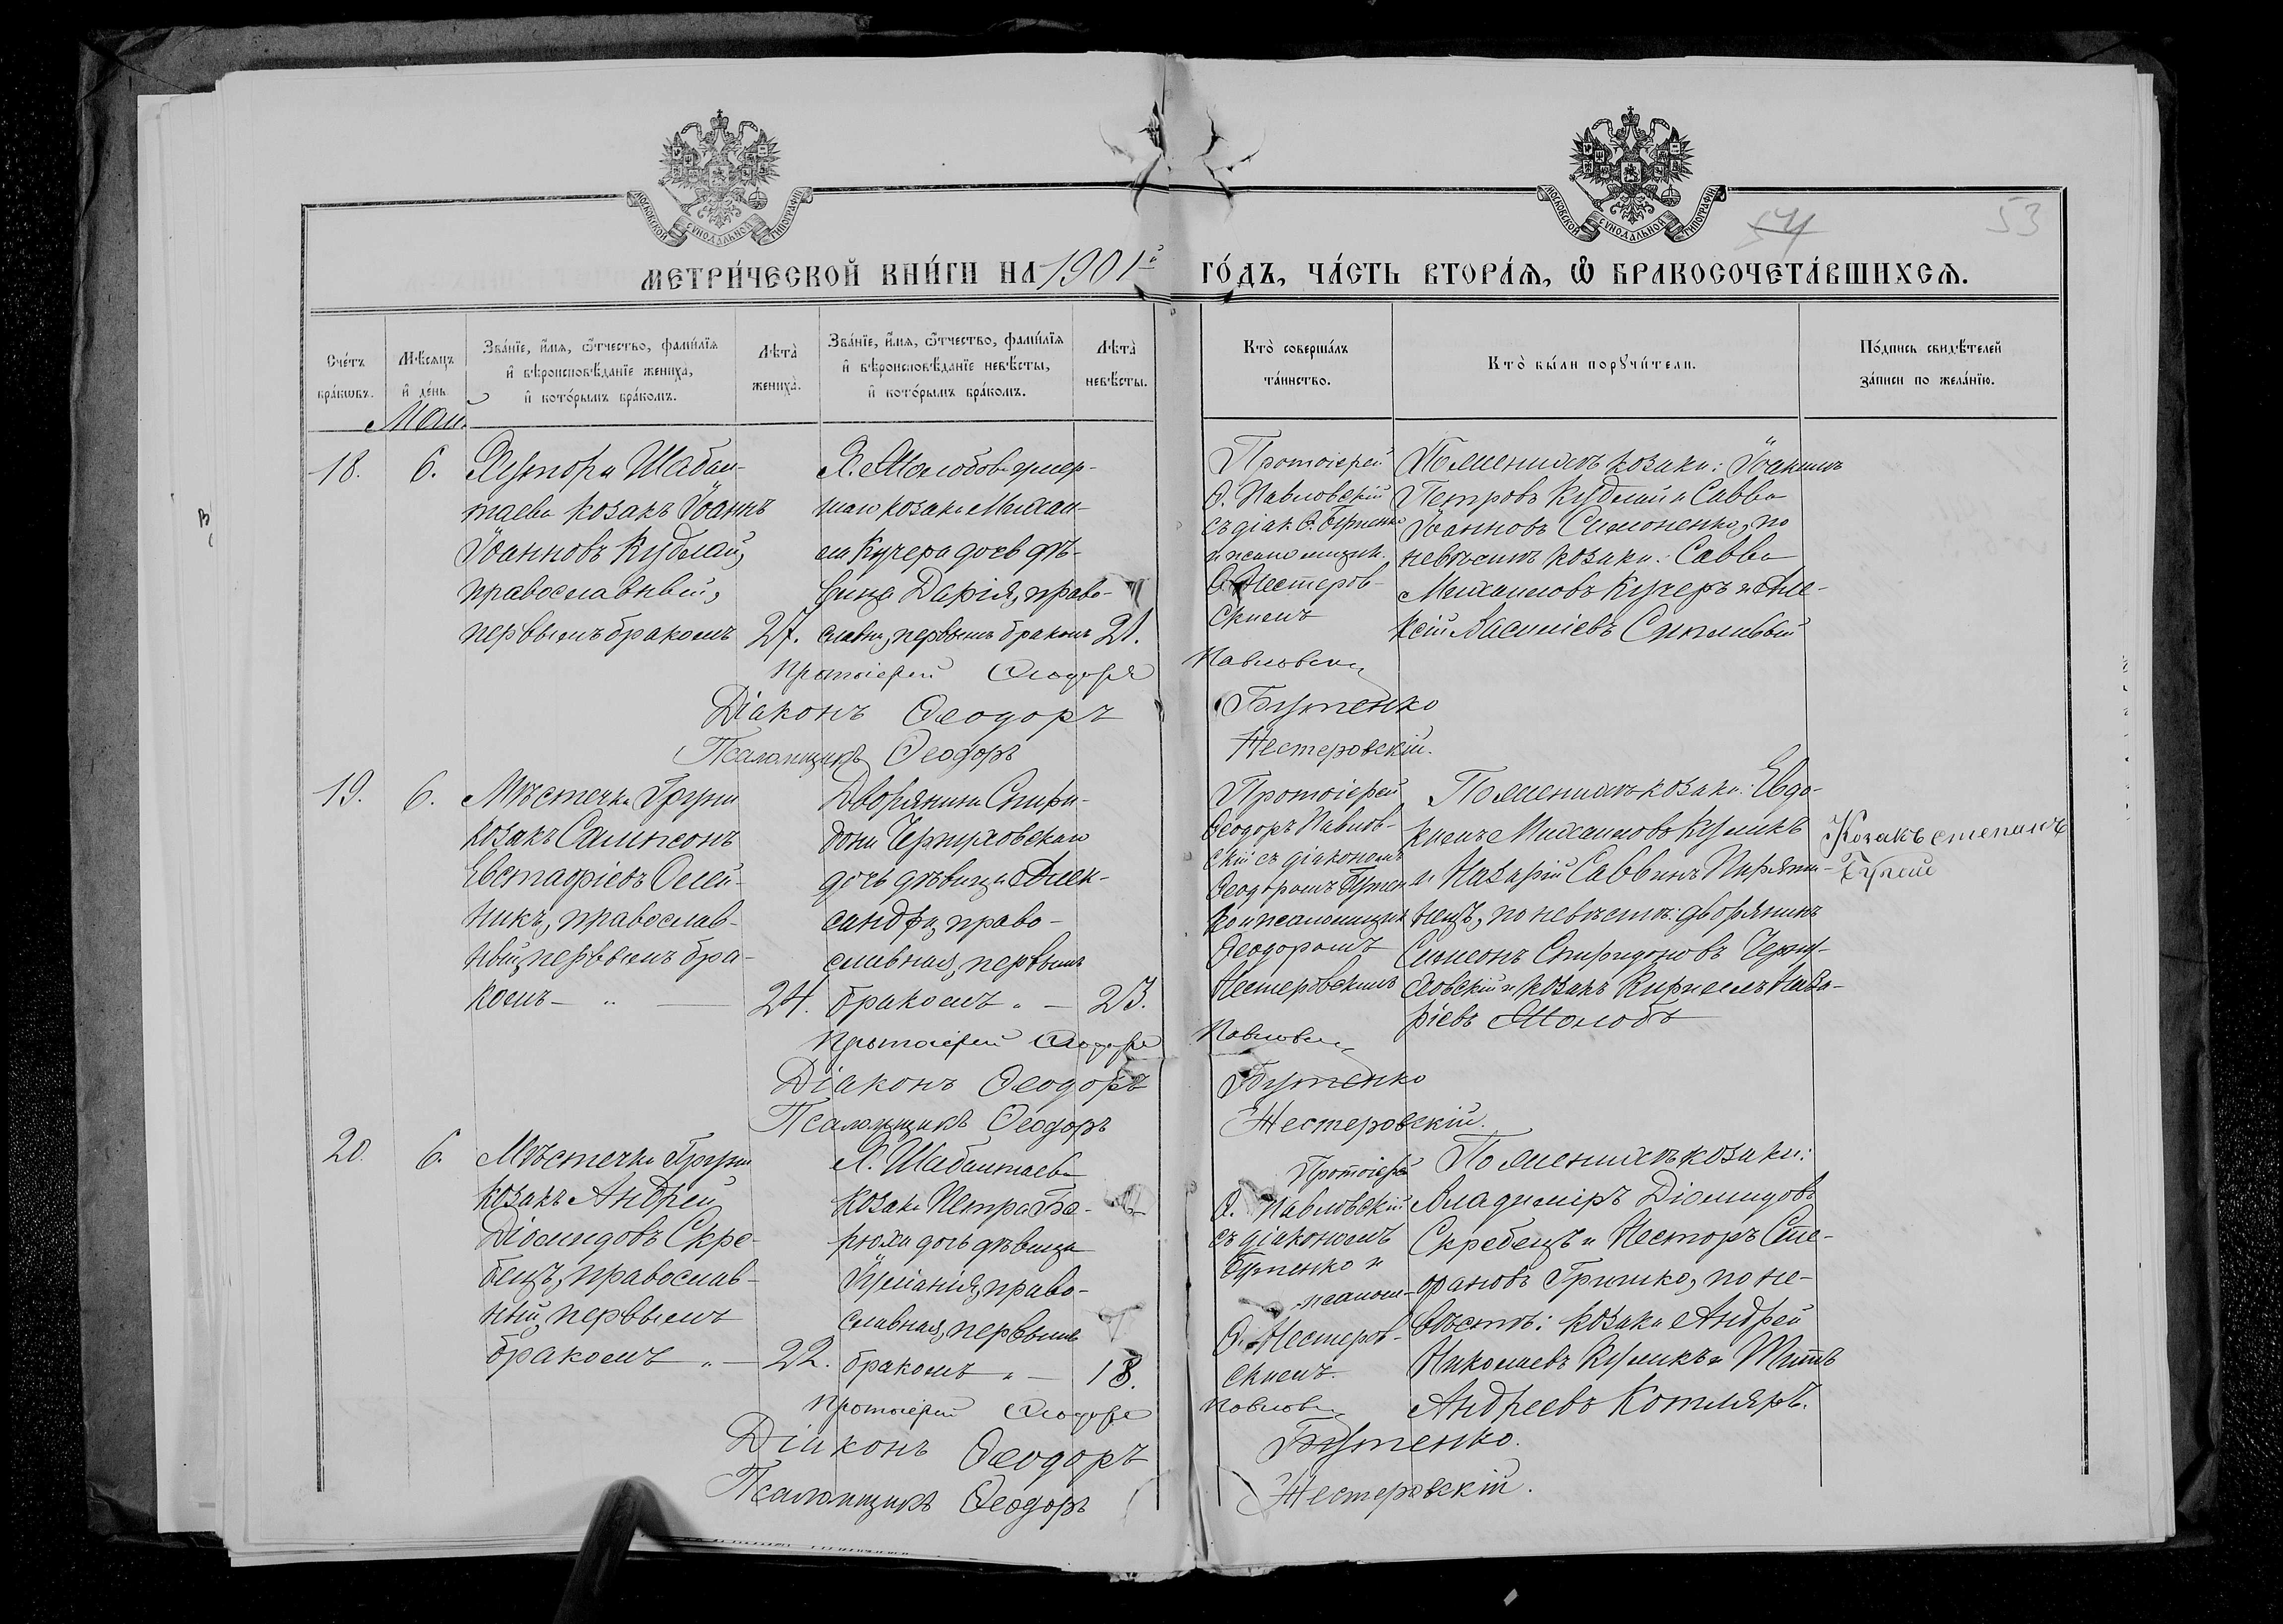 МОСКОВСКОЙ СѴНОДАЛЬНОЙ ТИПОГРАФІИ
МОСКОВСКОЙ СѴНОДАЛЬНОЙ ТИПОГРАФІИ
54
53
МЕТРИ́ЧЕСКОЙ КНИ́ГИ НА 1901й ГО́ДЪ, ЧА́СТЬ ВТОРА́Ѧ, Ѽ БРАКОСОЧЕТА́ВШИХСѦ.
Сче́тъ
бра́кωвъ.
Мѣ́сяцъ
и҆ де́нь.
Зва́нїе, и҆́мѧ, ѻ҆́тчество, фами́лїѧ
и҆ вѣроисповѣ́данїе жениха̀,
и҆ кото́рымъ бра́комъ.
Лѣта̀
жениха̀.
Зва́нїе, и҆́мѧ, ѻ҆́тчество, фами́лїѧ
и҆ вѣроисповѣ́данїе невѣ́сты,
и҆ кото́рымъ бра́комъ.
Лѣта̀
невѣ́сты.
Кто̀ соверша́лъ
та́инство.
Кто̀ бы́ли порꙋчи́тели.
По́дпись свидѣ́телей
за́писи по жела́нїю.
Май.
18.
6.
Хутора Шабал-
таева козакъ Іоаннъ
Іоанновъ Кудлай,
православный,
первымъ бракомъ
27.
козака Михаи-
ла Кучера дочь дѣ-
вица Дарія, право-
славная, первымъ бракомъ
21.
Протоіерей
Ѳ. Павловскій
съ діак. Ѳ. Бутенко
и псаломщик.
Ѳ. Нестеров-
скимъ
По женихѣ козаки: Іоакимъ
Петровъ Кудлай и Савва
Іоанновъ Симоненко, по
невѣстѣ козаки: Савва
Михаиловъ Кучеръ и Але-
ксій Василіевъ
Протоіерей Ѳеодоръ Павловскій
Діаконъ Ѳеодоръ Бутенко
Псаломщикъ Ѳеодоръ Нестеровскій.
19.
6.
Мѣстечка Груни
козакъ Сампсонъ
Евстафіевъ Олей-
никъ, православ-
ный, первымъ бра-
комъ
24.
Дворянина Спири-
дона Черняховскаго
дочь дѣвица Алек-
сандра, право-
славная, первымъ
бракомъ
23.
Протоіерей
Ѳеодоръ Павлов-
скій съ діакономъ
Ѳеодоромъ Бутен-
ко и псаломщик.
Ѳеодоромъ
Нестеровскимъ
По женихѣ козаки: Евдо-
кимъ Михаиловъ Куликъ
и Назарій Саввинъ Пиряти-
нецъ, по невѣстѣ: дворянинъ
Симеонъ Спиридоновъ Черня-
ховскій и козакъ Кириллъ Наза-
ріевъ Молобъ
Козакъ степанъ
Протоіерей Ѳеодоръ Павловскій
Діаконъ Ѳеодоръ Бутенко
Псаломщикъ Ѳеодоръ Нестеровскій.
20.
6.
Мѣстечка Груни
козакъ Андрей
Діомидовъ Скре-
бецъ, православ-
ный, первымъ
бракомъ
22.
Х. Шабалтаева
козака Петра Бо-
рюха дочь дѣвица
Іуліанія, право-
славная, первымъ
бракомъ
18.
Протоіерей
Ѳ. Павловскій
съ діакономъ
Бутенко и
псалом-
Ѳ. Нестеров-
скимъ.
По женихѣ козаки:
Владиміръ Діомидовъ
Скребецъ и Несторъ Сте-
фановъ Гришко, по не-
вѣстѣ: козаки Андрей
Николаевъ Куликъ и Титъ
Андреевъ Котляръ.
Протоіерей Ѳеодоръ Павловскій
Діаконъ Ѳеодоръ Бутенко.
Псаломщикъ Ѳеодоръ Нестеровскій.